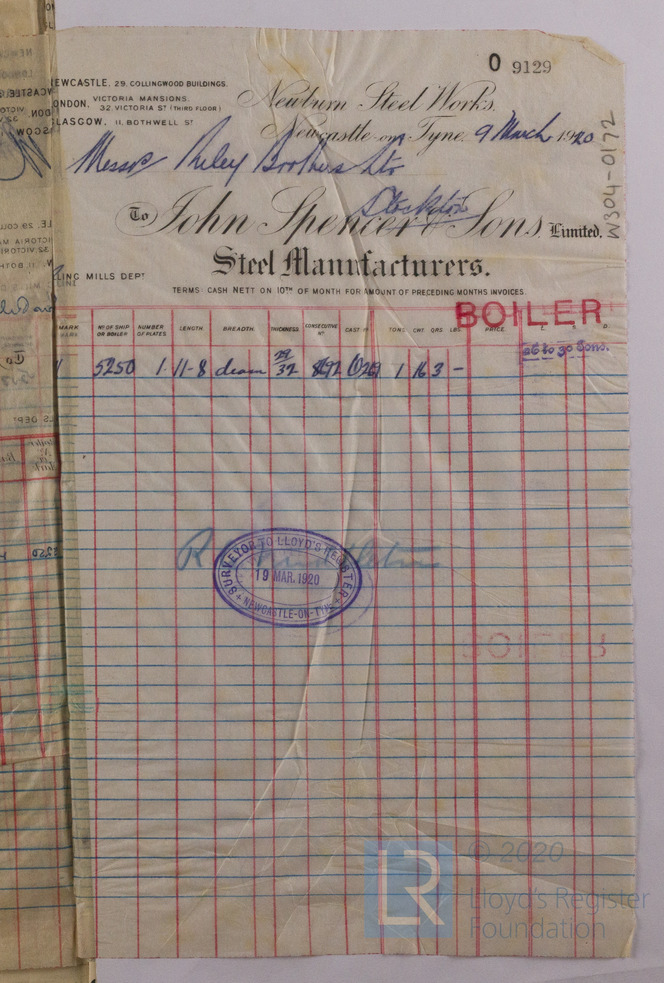 O 9129
NEWCASTLE, 29, COLLINGWOOD BUILDINGS.
LONDON, VICTORIA MANSIONS,
32, VICTORIA ST (THIRD FLOOR)
GLASGOW, 11, BOTHWELL ST
Newburn Steel Works,
Newcastle-on-Tyne, 9 March 1920
Messrs Riley Brothers Ltd
Stockton
To John Spencer & Sons, Limited,
Steel Manufacturers.
LING MILLS DEPT
TERMS: CASH NETT ON 10TH OF MONTH FOR AMOUNT OF PRECEDING MONTHS INVOICES.
BOILER
MARK No OF SHIP OR BOILER NUMBER OF PLATES LENGTH. BREADTH. THICKNESS CONSECUTIVE No CAST No TONS CWT QRS LBS. PRICE L S D
26 to 30 tons.
5250 1 11-8 diam 29/32 1 16 3 -
SURVEYOR TO LLOYD'S REGISTER
19 MAR. 1920
NEWCASTLE-ON-TYNE
BOILER
W304-0172
LR
© 2020
Lloyd's Register
Foundation